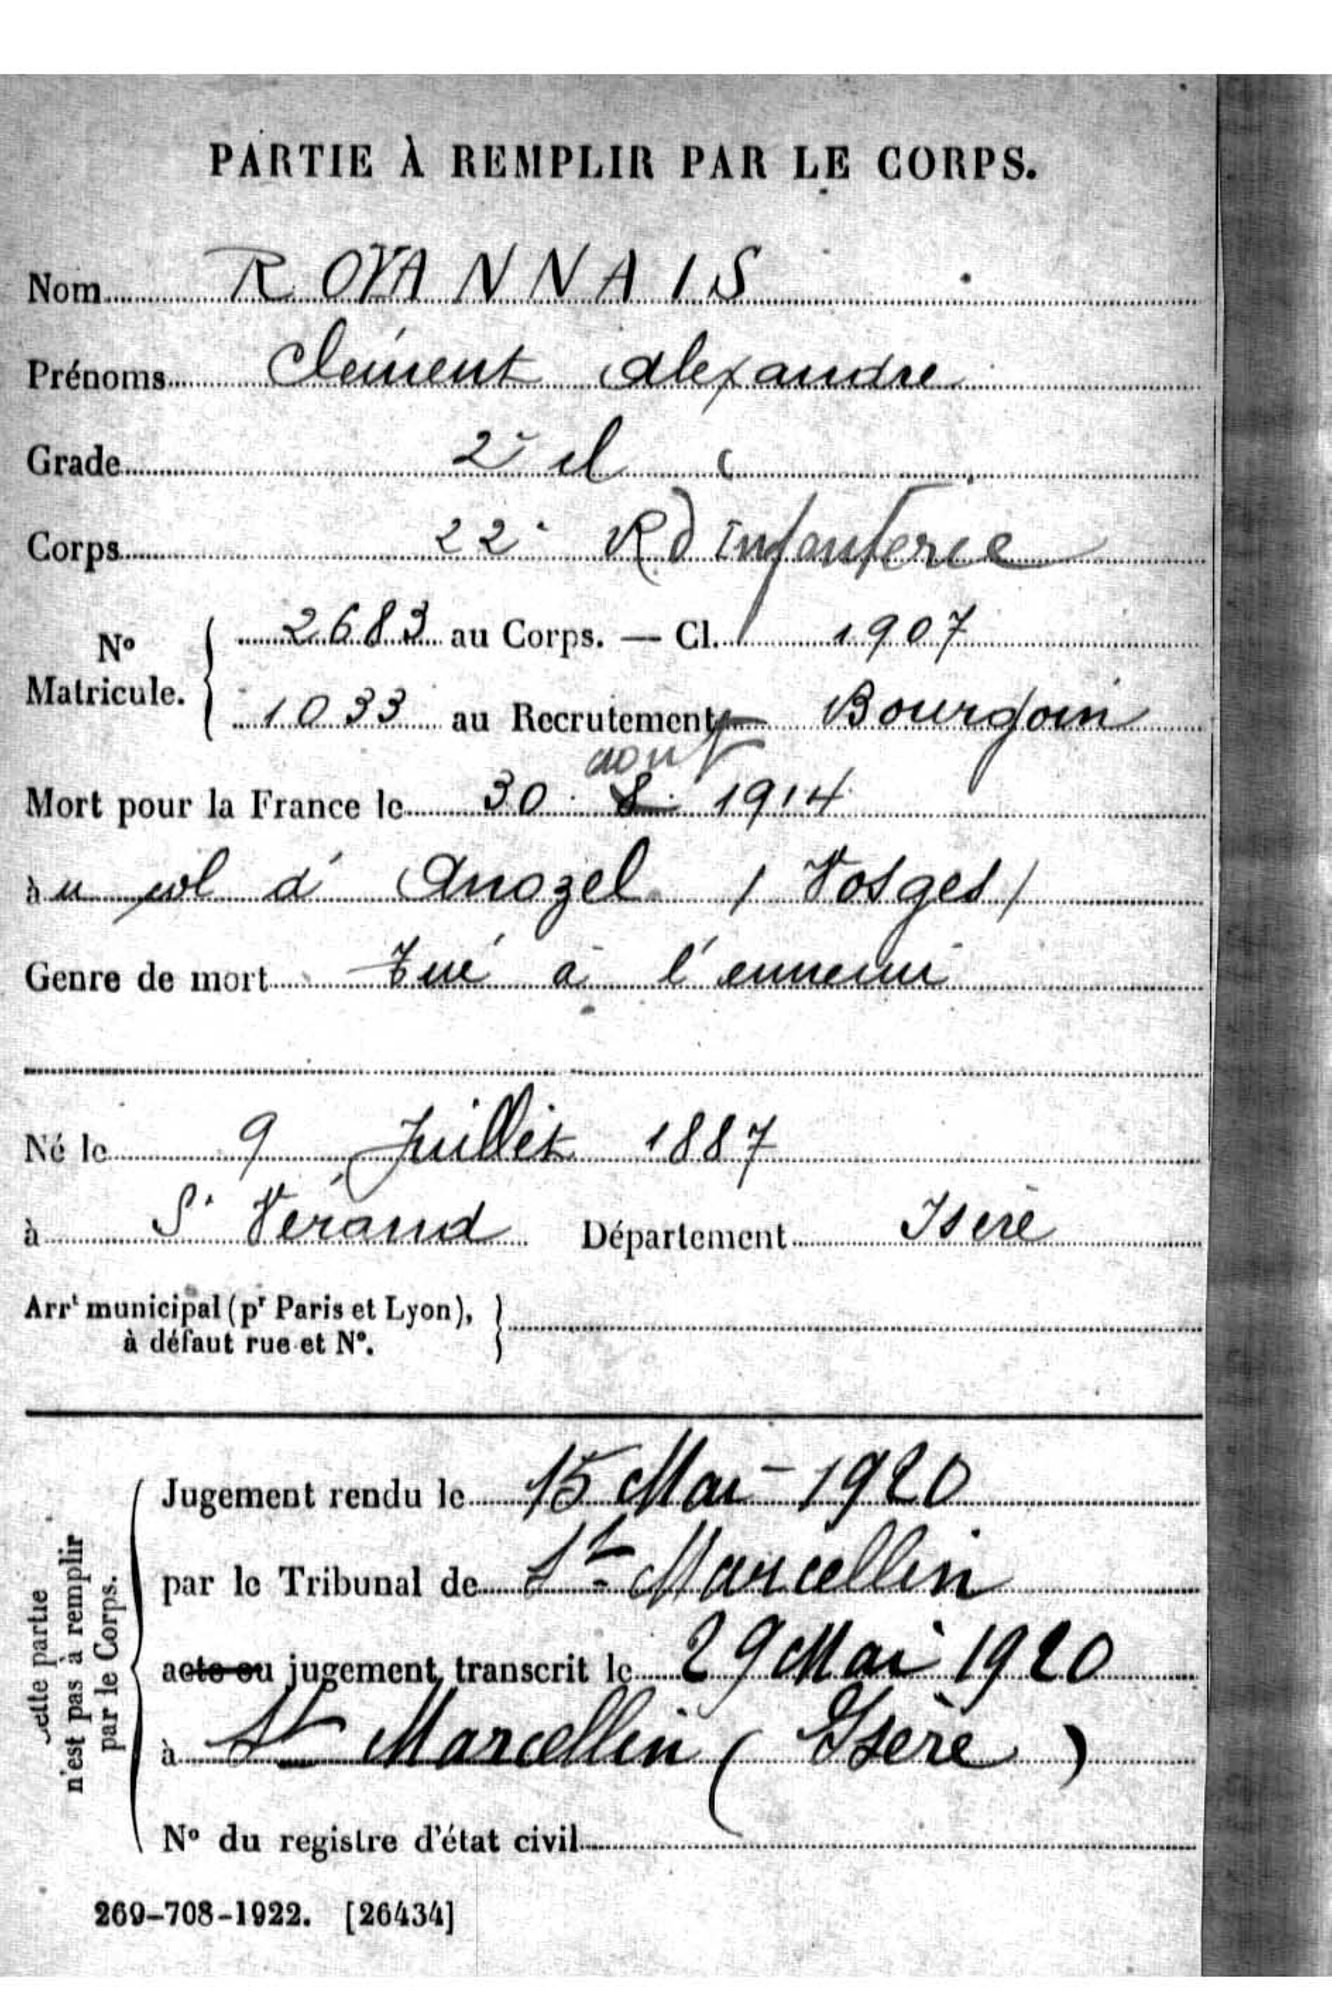 PARTIE À REMPLIR PAR LE CORPS.
Nom ROYANNAIS
Prénoms Clément Alexandre
Grade 2e cl
Corps 22e R d'infanterie
No Matricule. { 2683 au Corps. — Cl. 1907
1033 au Recrutement Bourgoin
août
Mort pour la France le 30 8 1914
au col d'Anozel (Vosges)
Genre de mort Tué à l'ennemi
Né le 9 Juillet 1887
à St Vérand Département Isère
Arrt municipal (pr Paris et Lyon), }
à défaut rue et No.
Cette partie
n'est pas à remplir
par le Corps.
Jugement rendu le 15 Mai 1920
par le Tribunal de St Marcellin
acte ou jugement transcrit le 29 Mai 1920
à St Marcellin (Isère)
No du registre d'état civil
269-708-1922. [26434]